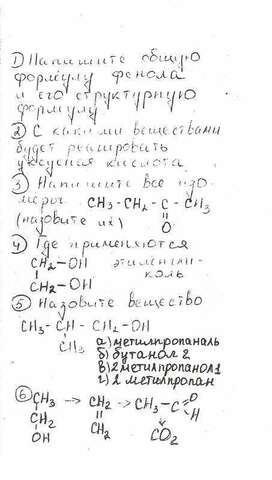 ① Напишите общую
формулу фенола
и его структурную
формулу
② С какими веществами
будет реагировать
уксусная кислота
③ Напишите все изо-
меры CH₃-CH₂-C-CH₃
(назовите их) || O
④ Где применяются
CH₂-OH этиленгли-
| коль
CH₂-OH
⑤ Назовите вещество
CH₃-CH-CH₂-OH
|
CH₃ а) метилпропаналь
б) бутанол 2
в) 2 метилпропанол 1
г) 2 метилпропан
⑥ CH₃ → CH₂ → CH₃-C=O
| || H
CH₂ CH₂ ↓
| CO₂
OH